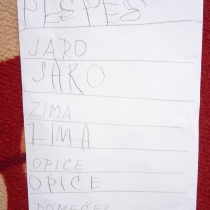 PEŠPES
JARO
JARO
ZIMA
ZIMA
OPICE
OPICE
DOMEČEK